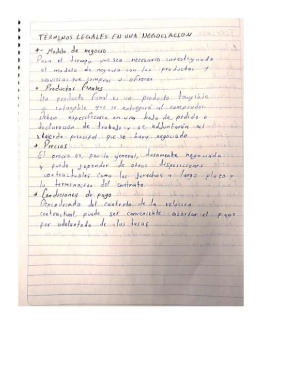 TÉRMINOS LEGALES EN UNA NEGOCIACIÓN
*- Modelo de negocio
Para el tiempo necesario investigando
el modelo de negocio con los productos y
servicios que compras u ofreces
* Productos finales
Un producto final es un producto tangible
o intangible que se entregará al comprador
Deben especificarse en una hoja de pedido o
declaración de trabajo, y se adjuntarán al
principal que se haya negociado
* Precios
El precio es, por lo general, duramente negociado
y puede depender de otras disposiciones
contractuales como los derechos a largo plazo y
la terminación del contrato.
* Condiciones de pago
Dependiendo del contexto de la relación
contractual, puede ser conveniente acordar el pago
por adelantado de las tasas